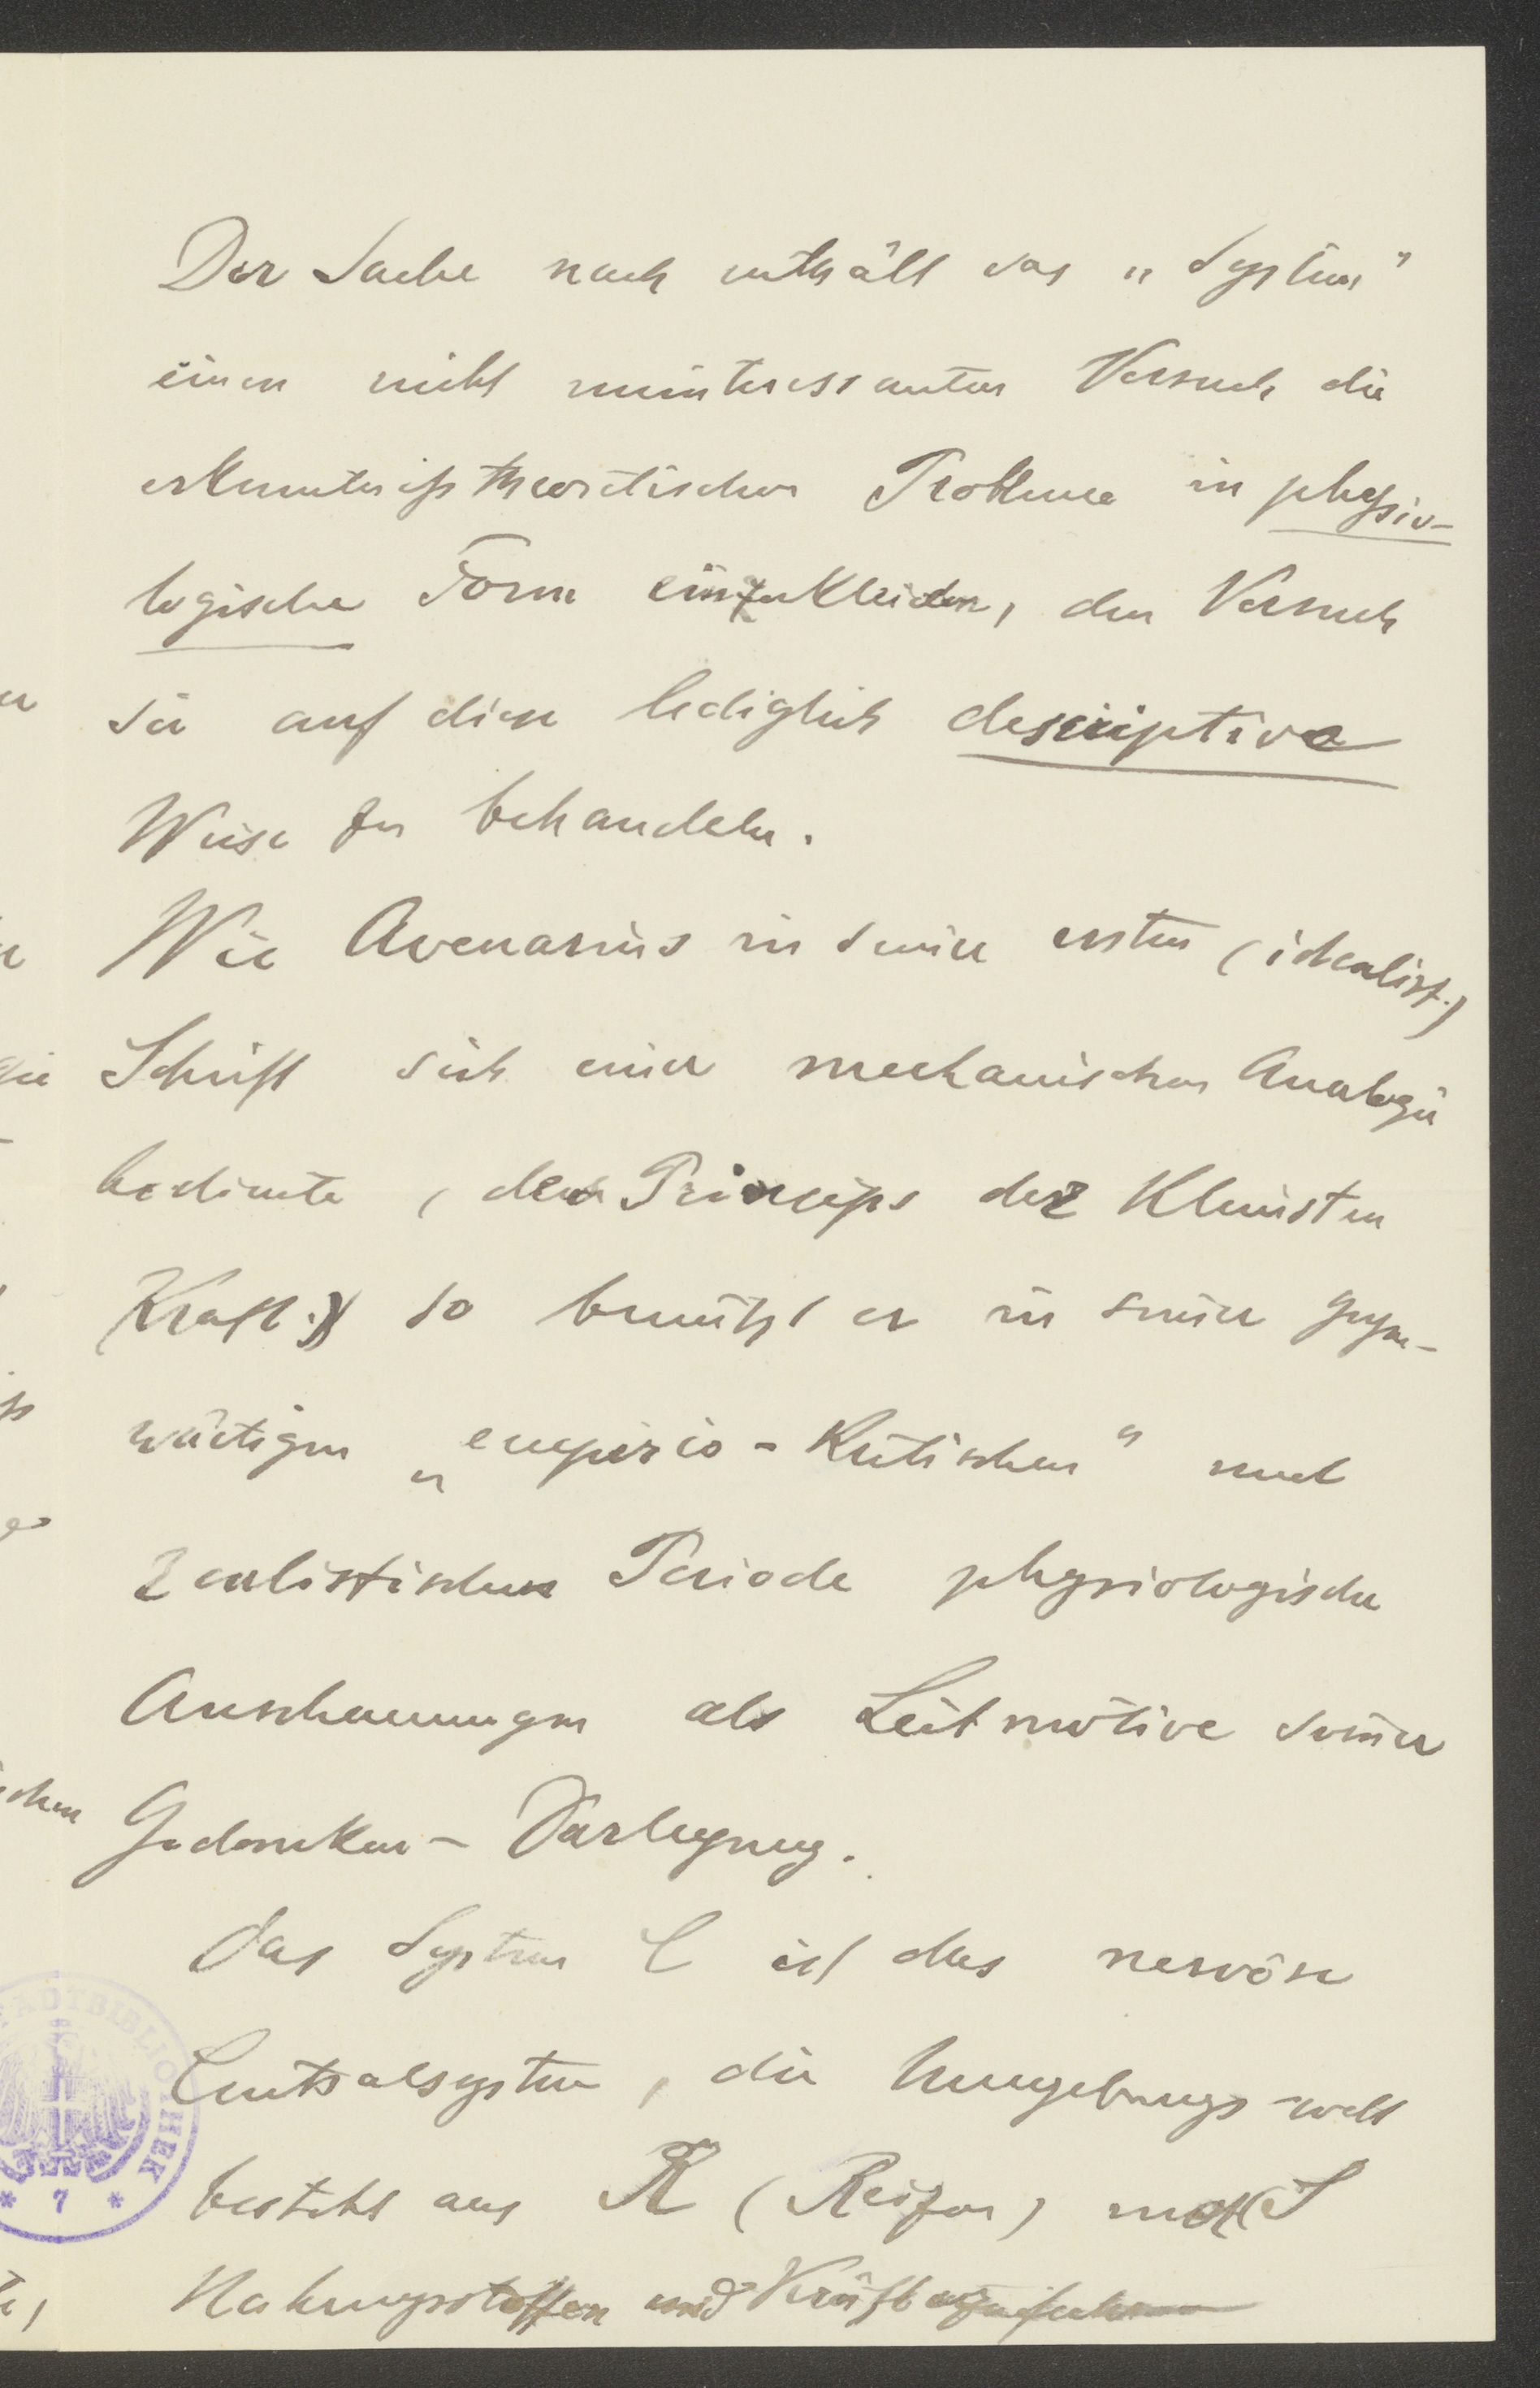 Der Sache nach enthält das „System"
einen nicht uninteressanten Versuch die
erkenntnißtheoretischen Probleme in physio-
logische Form einzukleiden, den Versuch
sie auf diese lediglich descriptive
Weise zu behandeln.
Wie Avenarius in seiner ersten (idealist.)
Schrift sich einer mechanischen Analogie
bediente, des Princips der kleinsten
Kraft.) so benützt er in seiner gegen-
wärtigen „empirio-kritischen" und
realistischen Periode physiologische
Anschauungen als Leitmotive seiner
Gedanken-Darlegung.
Das System C ist das nervöse
Centralsystem, die Umgebungs-welt
besteht aus R (Reizen) und S
Nahrungsstoffen und
STADTBIBLIOTHEK
* 7 *